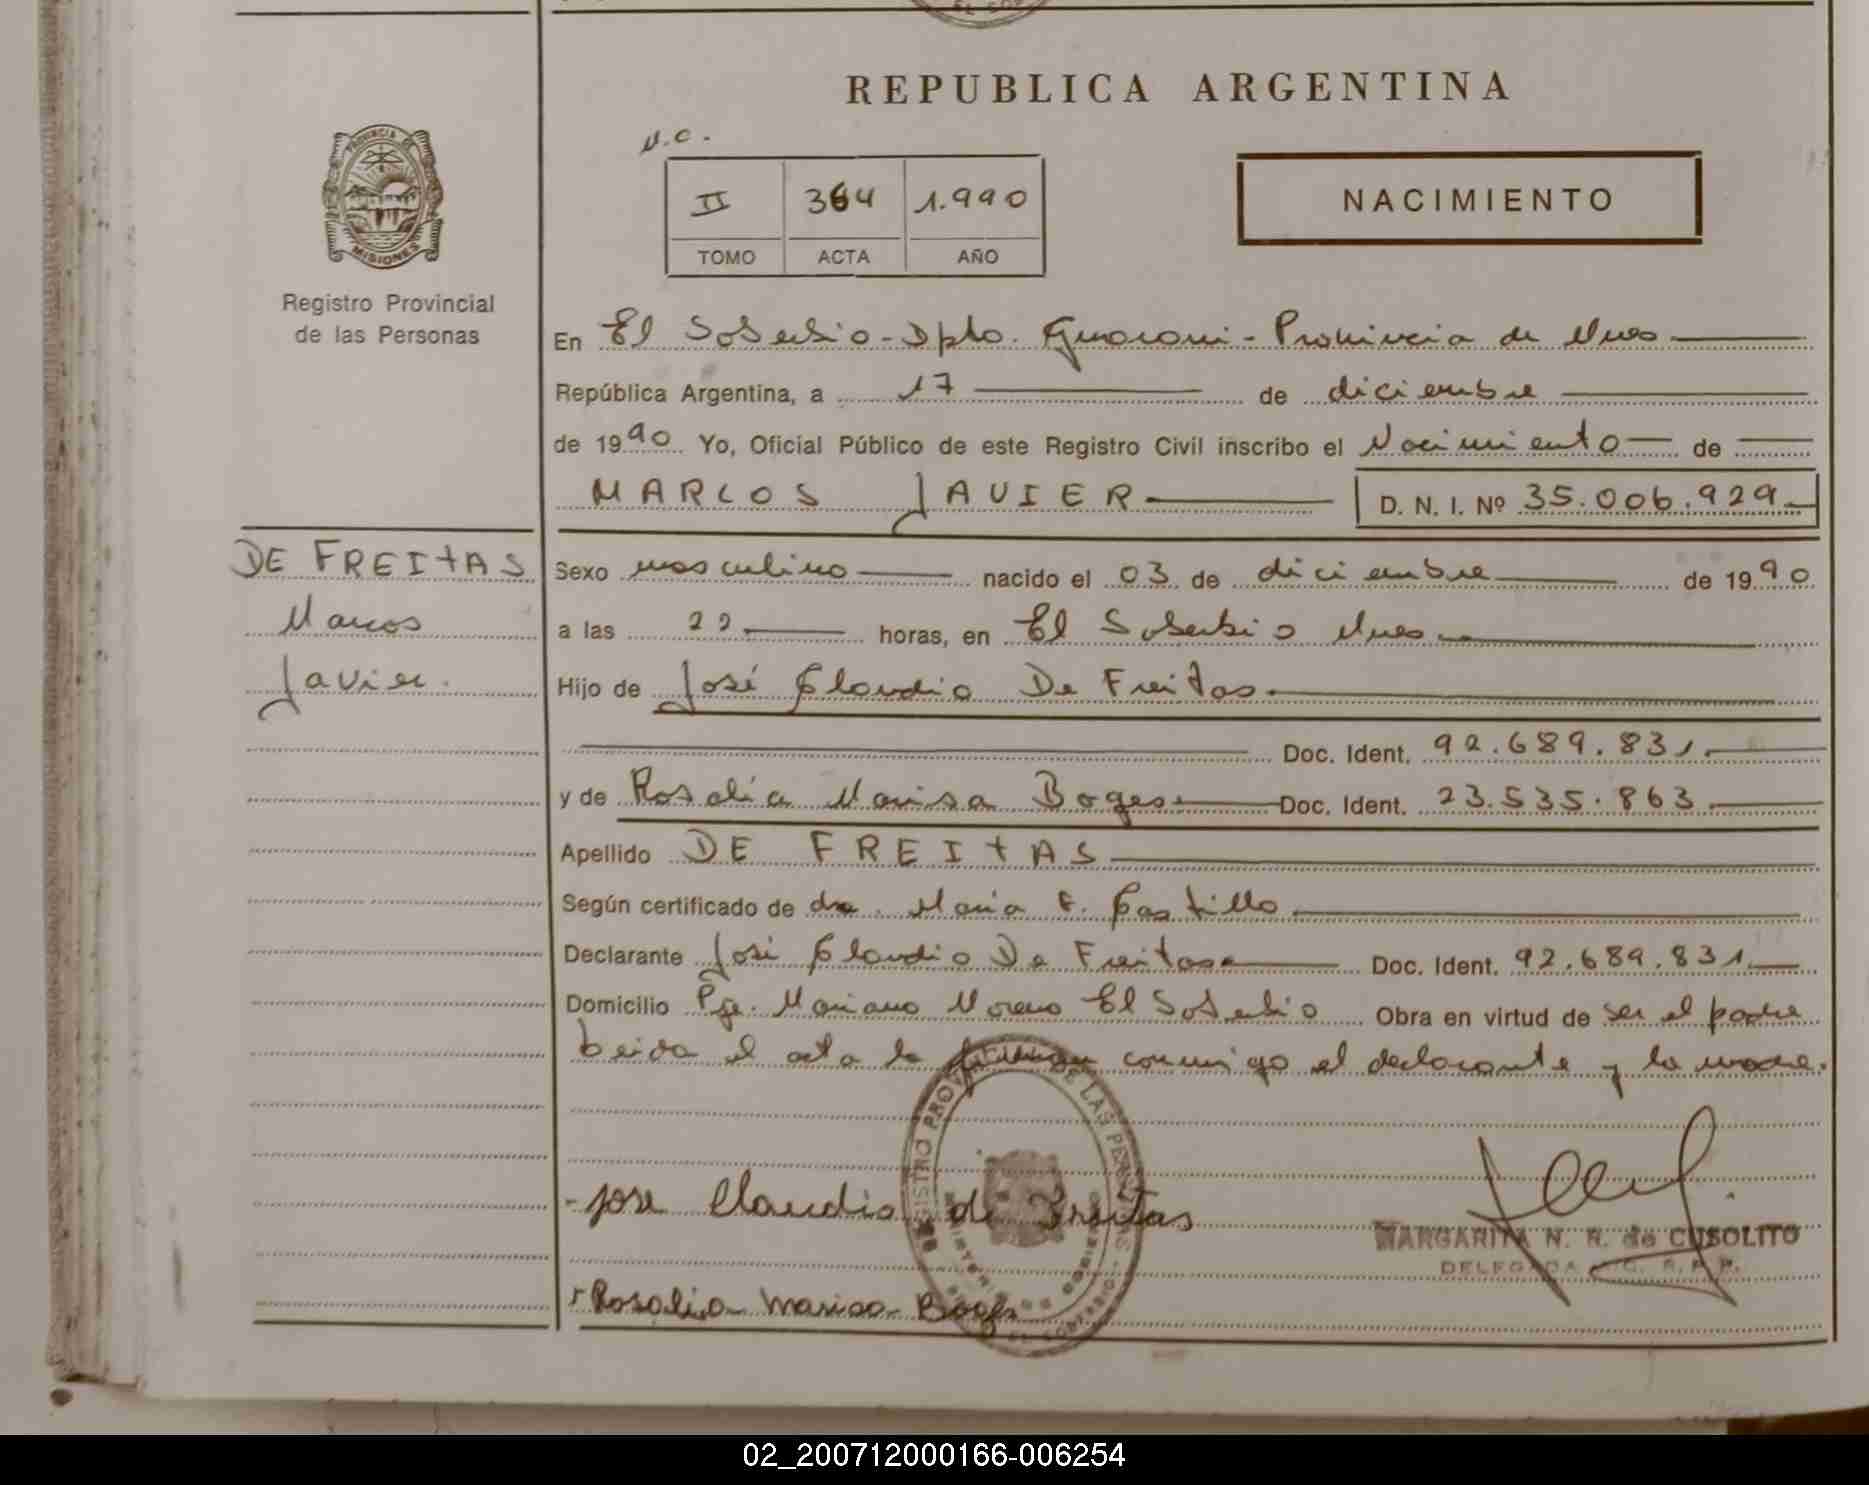 REPUBLICA ARGENTINA
PROVINCIA DE
MISIONES
Registro Provincial
de las Personas
N.C.
II 364 1.990
TOMO ACTA AÑO
NACIMIENTO
En El Soberbio - Dpto. Guarani - Provincia de Mnes
República Argentina, a 17 de diciembre
de 1990 Yo, Oficial Público de este Registro Civil inscribo el Nacimiento de
MARCOS JAVIER D. N. I. Nº 35.006.929
DE FREITAS
Marcos
Javier.
Sexo masculino nacido el 03 de diciembre de 1990
a las 22 horas, en El Soberbio Mnes
Hijo de José Claudio De Freitas.
Doc. Ident. 92.689.831
y de Rosalia Marisa Boges Doc. Ident. 23.535.863
Apellido DE FREITAS
Según certificado de dra. Maria E. Castillo
Declarante José Claudio De Freitas Doc. Ident. 92.689.831
Domicilio Pje. Mariano Moreno El Soberbio Obra en virtud de ser el padre
Leida el acta la firman conmigo el declarante y la madre.
Jose Claudio de Freitas
Rosalia Marisa Boges
MARGARITA N. R. de CUSOLITO
DELEGADA
EL SOBERBIO
02_200712000166-006254